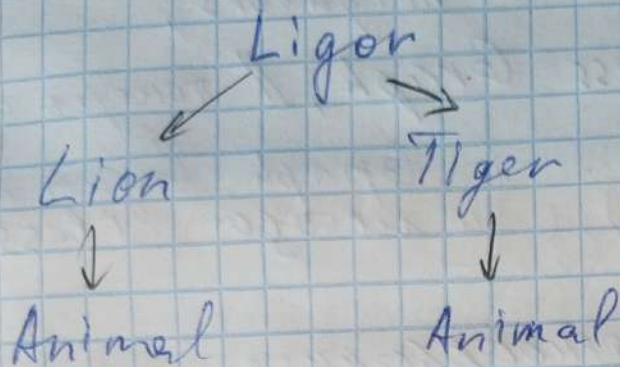 Ligor
Lion Tiger
Animal Animal